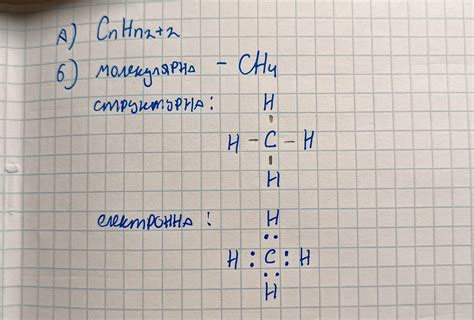 А) CnHn2+2
Б) молекулярна - CH4
структурна:
H
H - C - H
H
електронна:
H
H : C : H
H